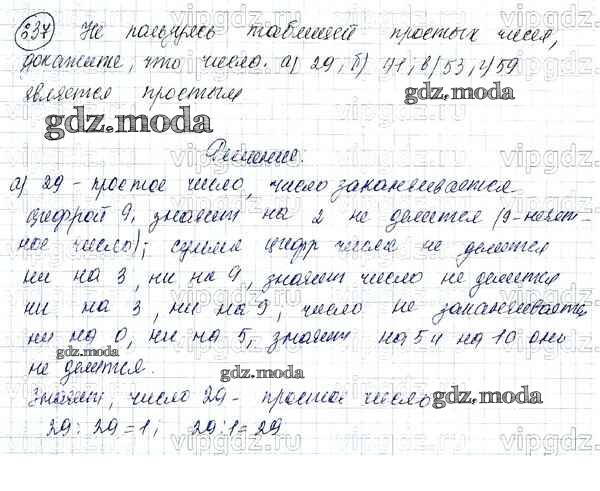 537 Не пользуясь таблицей простых чисел,
докажите, что числа: а) 29; б) 41; в) 53; г) 59
является простым
gdz.moda
gdz.moda
Решение.
а) 29 - простое число, число заканчивается
цифрой 9, значит на 2 не делится (9 - нечет-
ное число); сумма цифр числа не делится
ни на 3, ни на 9, значит число не делится
ни на 3, ни на 9, число не заканчивается
ни на 0, ни на 5, значит на 5 и на 10 оно
не делится.
gdz.moda
gdz.moda
Значит, число 29 - простое число
gdz.moda
29 : 29 = 1; 29 : 1 = 29
vipgdz.ru